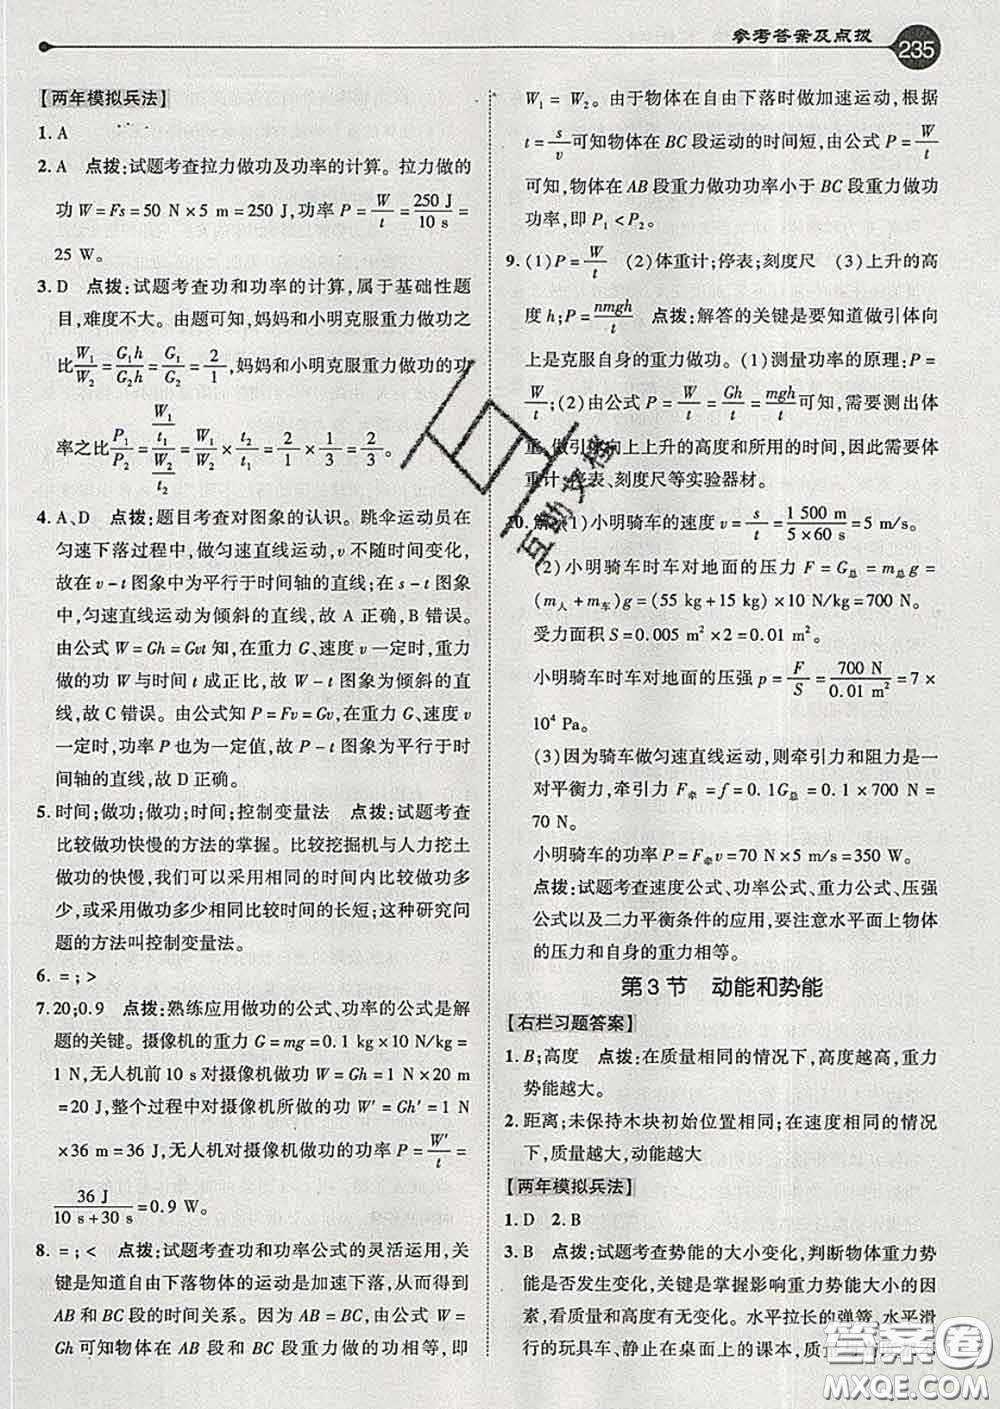 参考答案及点拨
235
【两年模拟兵法】
1. A
2. A　点拨:试题考查拉力做功及功率的计算。拉力做的
功 W = Fs = 50 N × 5 m = 250 J,功率 P = W/t = 250 J/10 s =
25 W。
3. D　点拨:试题考查功和功率的计算,属于基础性题
目,难度不大。由题可知,妈妈和小明克服重力做功之
比 W₁/W₂ = G₁h/G₂h = G₁/G₂ = 2/1,妈妈和小明克服重力做功的功
率之比 P₁/P₂ = (W₁/t₁)/(W₂/t₂) = W₁/W₂ × t₂/t₁ = 2/1 × 1/3 = 2/3。
4. A、D　点拨:题目考查对图象的认识。跳伞运动员在
匀速下落过程中,做匀速直线运动,v 不随时间变化,
故在 v-t 图象中为平行于时间轴的直线;在 s-t 图象
中,匀速直线运动为倾斜的直线,故 A 正确,B 错误。
由公式 W = Gh = Gvt 知,在重力 G、速度 v 一定时,重力
做的功 W 与时间 t 成正比,故 W-t 图象为倾斜的直
线,故 C 错误。由公式知 P = Fv = Gv,在重力 G、速度 v
一定时,功率 P 也为一定值,故 P-t 图象为平行于时
间轴的直线,故 D 正确。
5. 时间;做功;做功;时间;控制变量法　点拨:试题考查
比较做功快慢的方法的掌握。比较挖掘机与人力挖土
做功的快慢,我们可以采用相同的时间内比较做功多
少,或采用做功多少相同比较时间的长短;这种研究问
题的方法叫控制变量法。
6. = ; >
7. 20;0.9　点拨:熟练应用做功的公式、功率的公式是解
题的关键。摄像机的重力 G = mg = 0.1 kg × 10 N/kg =
1 N,无人机前 10 s 对摄像机做功 W = Gh = 1 N × 20 m
= 20 J,整个过程中对摄像机所做的功 W′ = Gh′ = 1 N
× 36 m = 36 J,无人机对摄像机做功的功率 P = W′/t =
36 J/(10 s + 30 s) = 0.9 W。
8. = ; <　点拨:试题考查功和功率公式的灵活运用,关
键是知道自由下落物体的运动是加速下落,从而得到
AB 和 BC 段的时间关系。因为 AB = BC,由公式 W =
Gh 可知物体在 AB 段和 BC 段重力做功的功相等,即
W₁ = W₂。由于物体在自由下落时做加速运动,根据
t = s/v 可知物体在 BC 段运动的时间短,由公式 P = W/t
可知,物体在 AB 段重力做功功率小于 BC 段重力做功
功率,即 P₁ < P₂。
9. (1) P = W/t　(2)体重计;停表;刻度尺　(3)上升的高
度 h; P = nmgh/t　点拨:解答的关键是要知道做引体向
上是克服自身的重力做功。(1)测量功率的原理:P =
W/t;(2)由公式 P = W/t = Gh/t = mgh/t 可知,需要测出体
重、做引体向上上升的高度和所用的时间,因此需要体
重计、停表、刻度尺等实验器材。
10. 解:(1)小明骑车的速度 v = s/t = 1 500 m/(5 × 60 s) = 5 m/s。
(2)小明骑车时车对地面的压力 F = G总 = m总g =
(m人 + m车)g = (55 kg + 15 kg) × 10 N/kg = 700 N。
受力面积 S = 0.005 m² × 2 = 0.01 m²。
小明骑车时车对地面的压强 p = F/S = 700 N/0.01 m² = 7 ×
10⁴ Pa。
(3)因为骑车做匀速直线运动,则牵引力和阻力是一
对平衡力,牵引力 F牵 = f = 0.1G总 = 0.1 × 700 N =
70 N。
小明骑车的功率 P = F牵v = 70 N × 5 m/s = 350 W。
点拨:试题考查速度公式、功率公式、重力公式、压强
公式以及二力平衡条件的应用,要注意水平面上物体
的压力和自身的重力相等。
第 3 节　动能和势能
【右栏习题答案】
1. B;高度　点拨:在质量相同的情况下,高度越高,重力
势能越大。
2. 距离;未保持木块初始位置相同;在速度相同的情况
下,质量越大,动能越大
【两年模拟兵法】
1. D　2. B
3. B　点拨:试题考查势能的大小变化,判断物体重力势
能是否发生变化,关键是掌握影响重力势能大小的因
素,看质量和高度有无变化。水平拉长的弹簧、水平滑
行的玩具车、静止在桌面上的课本,质量
互助文档
答案圈
MXQE.COM